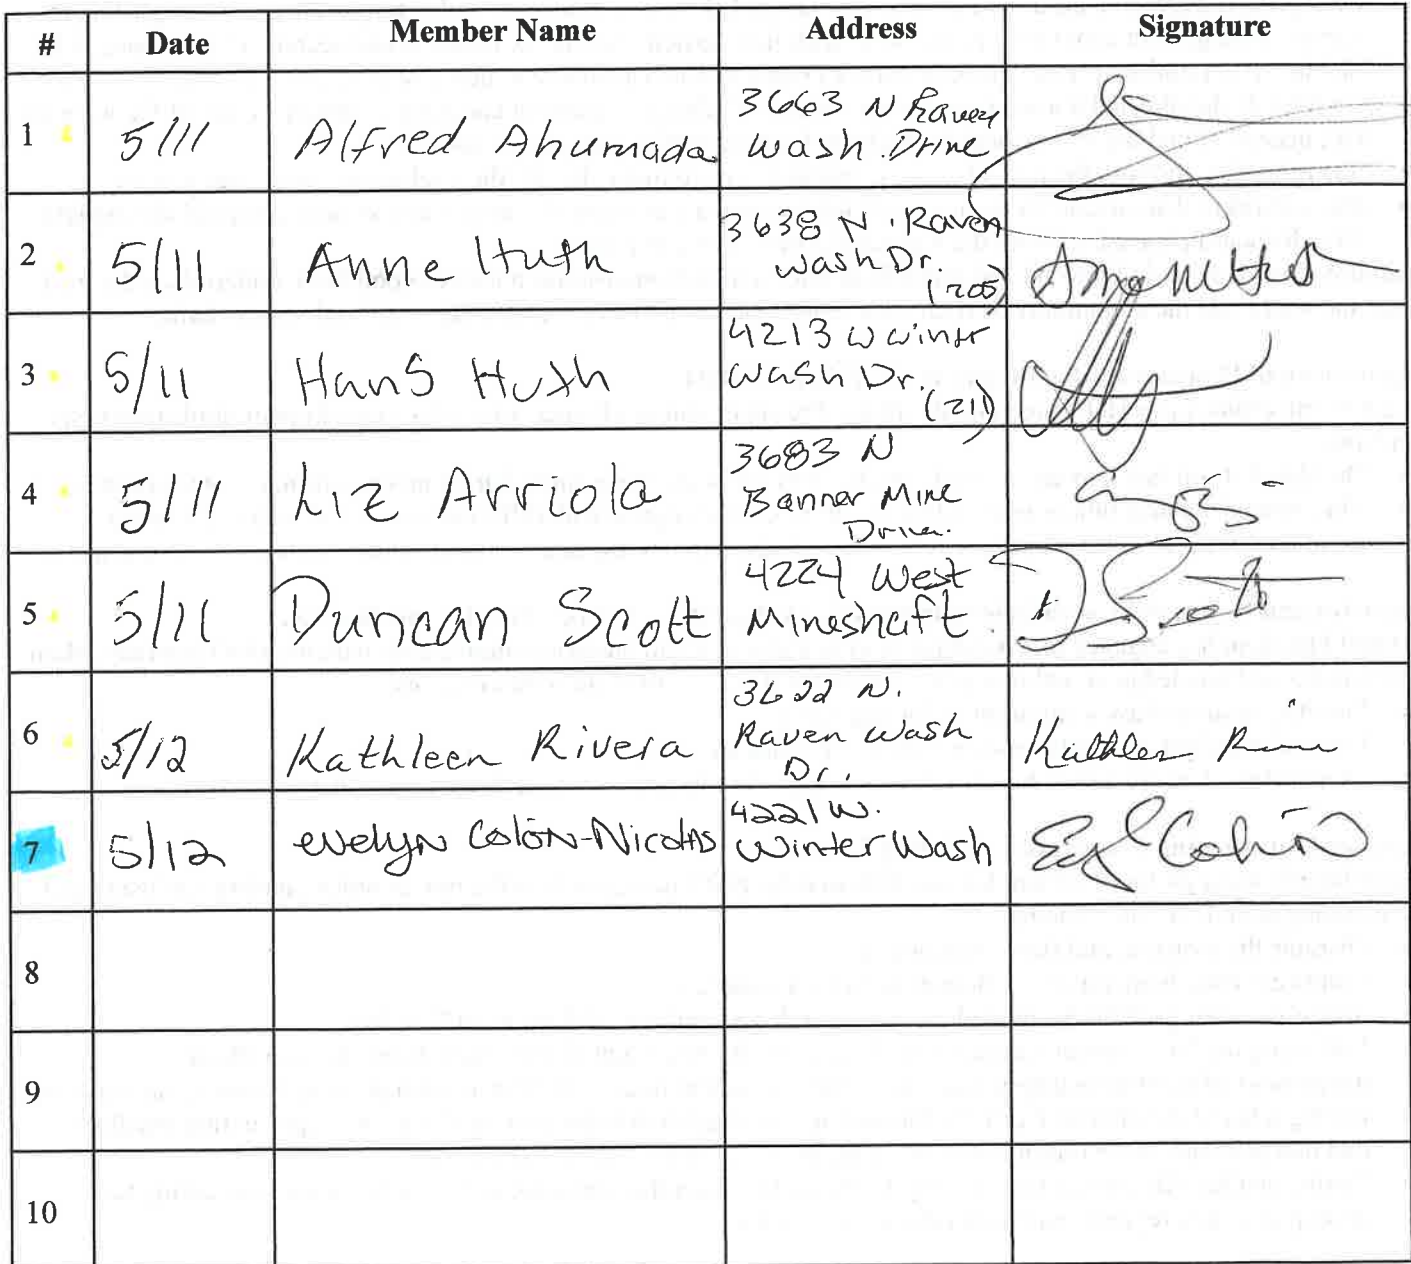 # Date Member Name Address Signature
1 5/11 Alfred Ahumada 3663 N Raven
Wash Drive
2 5/11 Anne Huth 3638 N. Raven
Wash Dr.
(205)
3 5/11 Hans Huth 4213 W Winter
Wash Dr.
(211)
4 5/11 Liz Arriola 3683 N
Banner Mine
Drive.
5 5/11 Duncan Scott 4224 West
Mineshaft. D Scott
6 5/12 Kathleen Rivera 3622 N.
Raven Wash
Dr. Kathleen
7 5/12 evelyn Colón-Nicolas 4221 W.
Winter Wash Colón
8
9
10